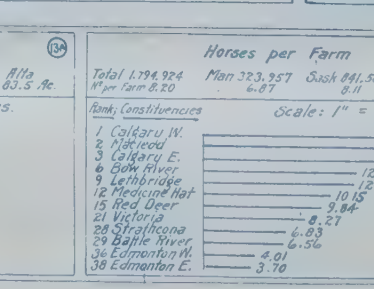 13A
Alta
83.5 Ac.
Horses per Farm
Total 1.794.924 Man 323.957 Sask 841.5
Nº per Farm 8.20 6.87 8.11
Rank; Constituencies Scale: 1" =
1 Calgary W.
2 Macleod
3 Calgary E.
6 Bow River 12
9 Lethbridge 12
12 Medicine Hat 10 15
15 Red Deer 9.84
21 Victoria 8.27
28 Strathcona 6.83
29 Battle River 6.56
36 Edmonton W. 4.01
38 Edmonton E. 3.70